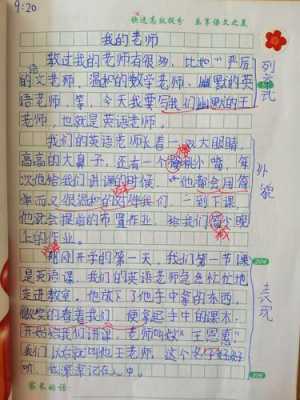 9:20
快速高效提分 乐享语文之美
我的老师
教过我的老师有很多，比如"严厉
的语文老师，温柔的数学老师，幽默的英
语老师，等，今天我要写我们幽默的王
老师，也就是英语老师。
我们的英语老师长着一双大眼睛，
高高的大鼻子，还有一个樱桃小嘴，每
次他给我们讲课的时候，他都会用简
单而又很温柔的 我们 一到下课，
他就会提前的布置作业，给我们 少晚
上的作业。
刚开学的第一天，我们第一节课
是英语课，我们的英语老师急急忙忙地
走进教室。他放下了他手中拿的东西，
微笑的看着我们，便拿起手中的课本，
开始给我们讲课，老师叫做"王
我们以后就叫他王老师，这个名字好好
听，我牢牢记在心中。
列
外貌
表现
家长的话